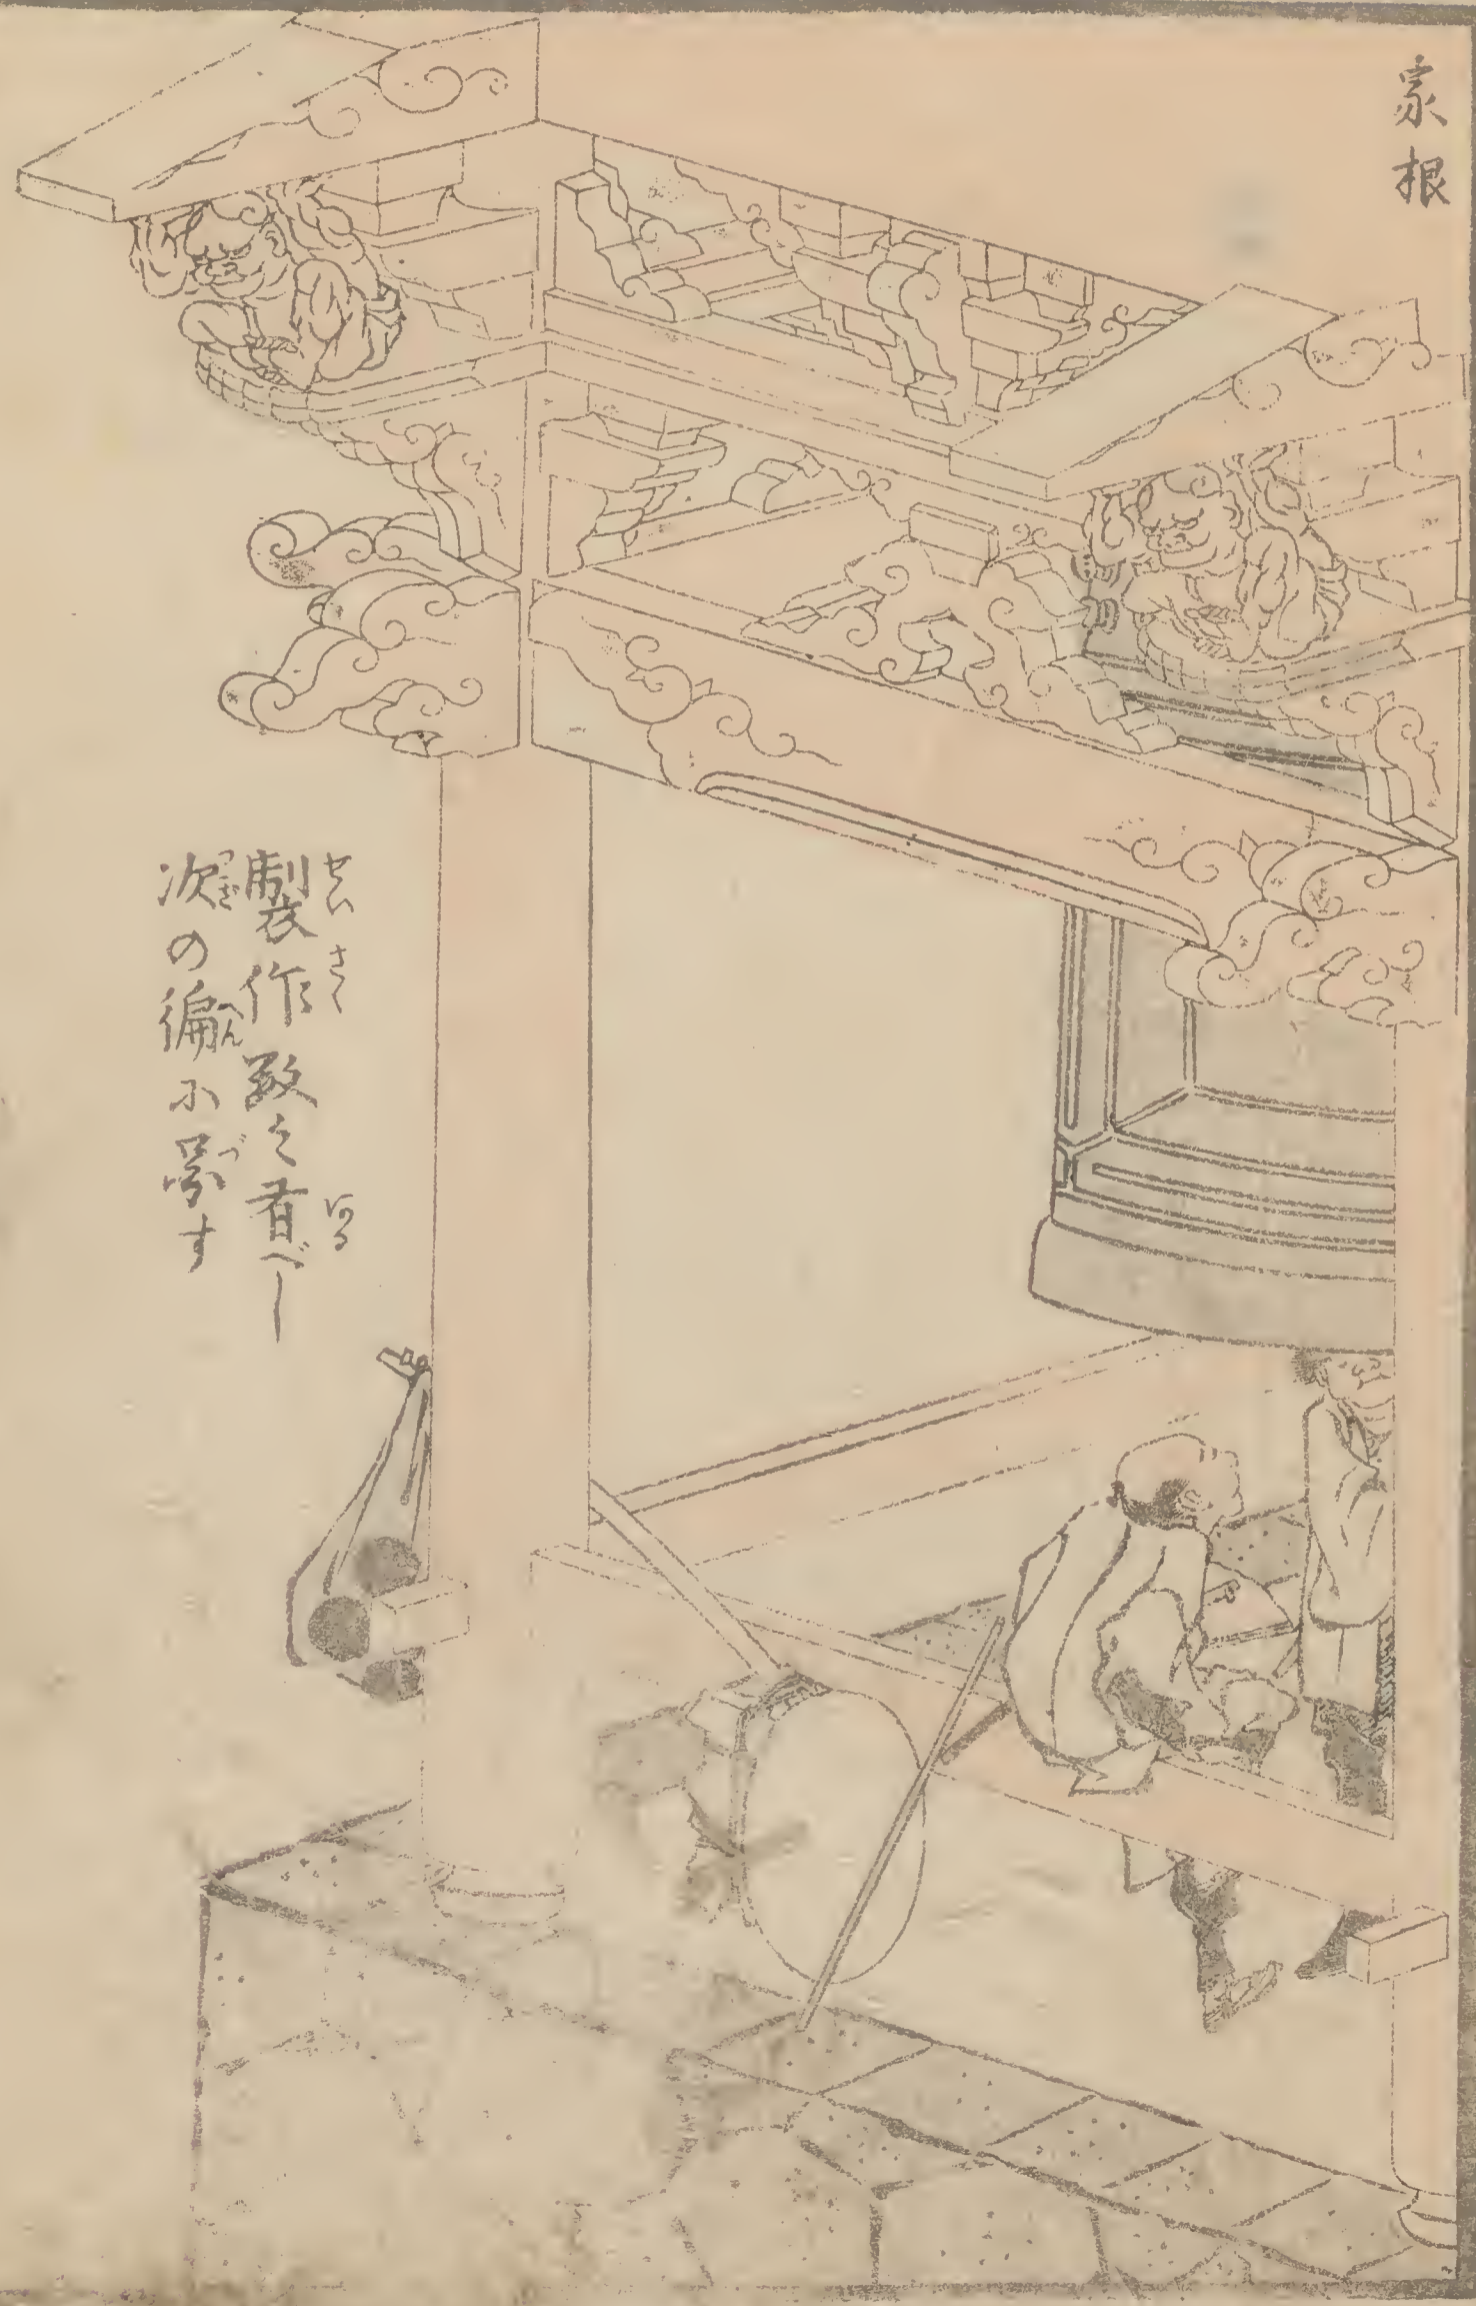 家根
製作数々有べし
次の徧に圖す